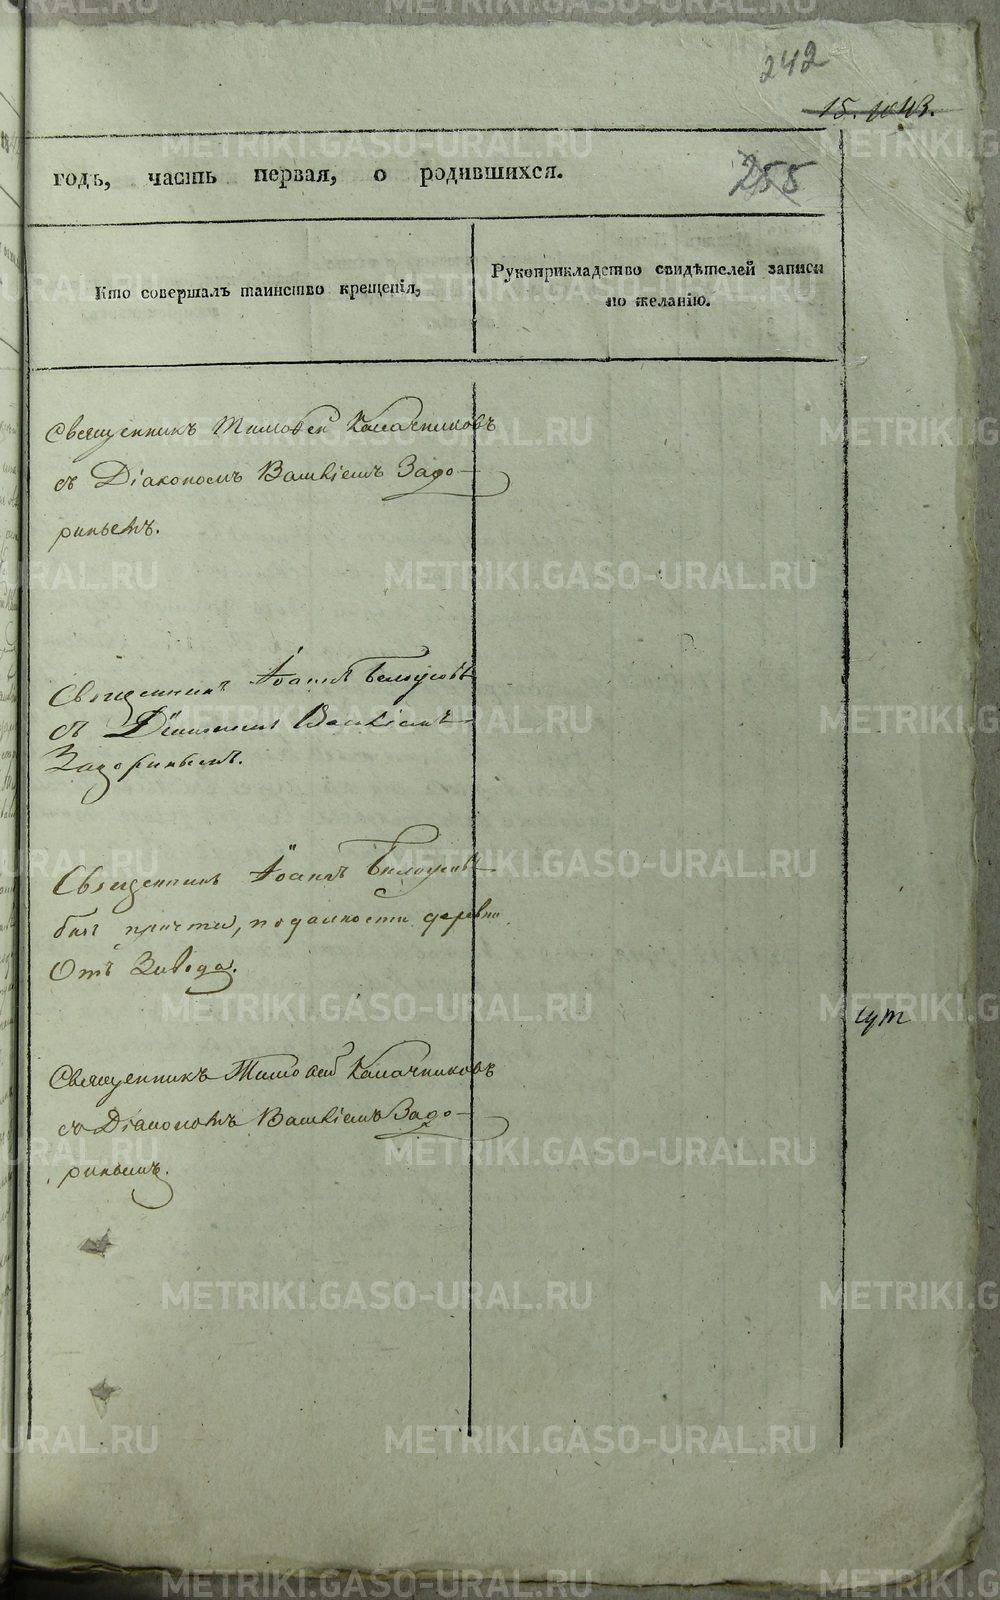 242
255
годъ, часть первая, о родившихся.
Кто совершалъ таинство крещенія,
Рукоприкладство свидѣтелей записи
по желанію.
Священникъ Тимофей Калачниковъ
съ Діакономъ Василіемъ Задо-
ринымъ.
Священникъ Іоаннъ Белоусовъ
съ Діакономъ Василіемъ
Задоринымъ.
Священникъ Іоаннъ Белоусовъ
безъ причта, по дальности деревни
Отъ Завода.
Священникъ Тимофей Калачниковъ
съ Діакономъ Василіемъ Задо-
ринымъ.
METRIKI.GASO-URAL.RU